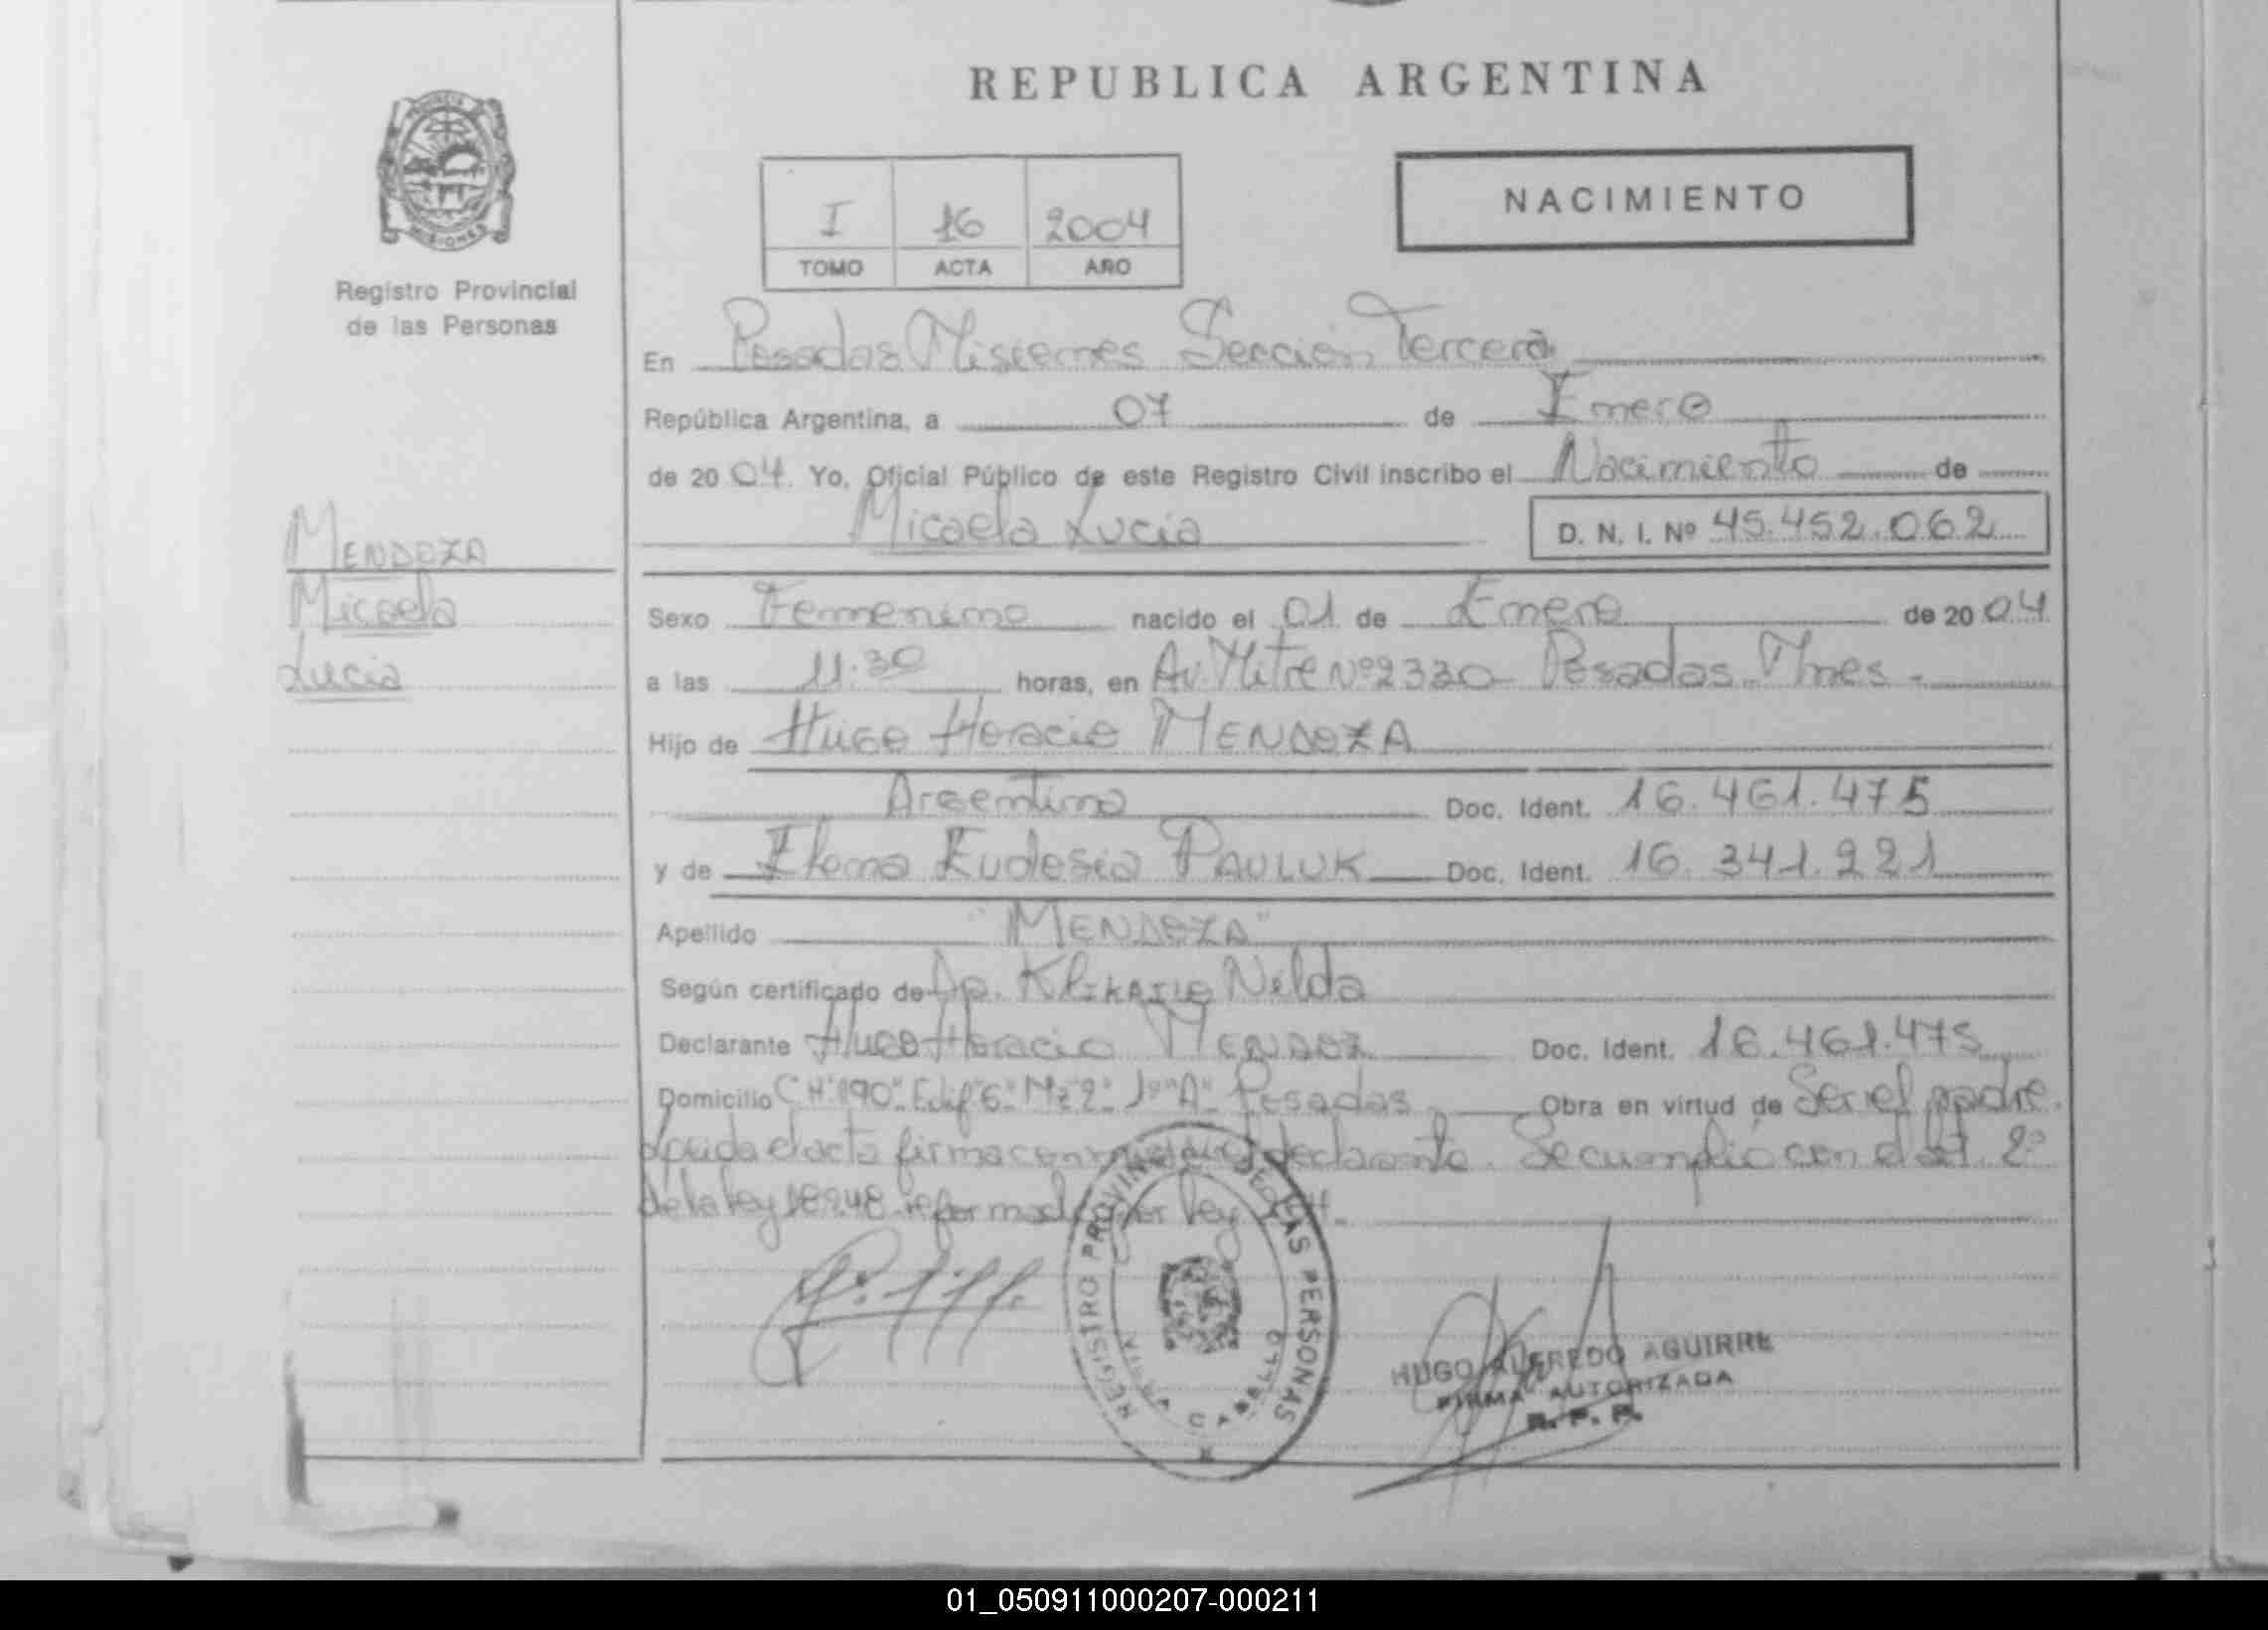 REPUBLICA ARGENTINA
PROVINCIA
MISIONES
Registro Provincial
de las Personas
NACIMIENTO
I 16 2004
TOMO ACTA AÑO
En Posadas Misiones Sección Tercera
República Argentina, a 07 de Enero
de 2004. Yo, Oficial Público de este Registro Civil inscribo el Nacimiento de
Micaela Lucia D. N. I. Nº 45.452.062
MENDOZA
Micaela
Lucia
Sexo Femenino nacido el 01 de Enero de 2004
a las 11:30 horas, en Av. Mitre Nº 2330 Posadas Mnes.-
Hijo de Hugo Horacio MENDOZA
Argentino Doc. Ident. 16.461.475
y de Elena Eudosia PAULUK Doc. Ident. 16.341.221
Apellido "MENDOZA"
Según certificado de Nelda
Declarante Hugo Horacio MENDOZ Doc. Ident. 16.461.475
Domicilio CH"190" Edif"6" Mz"2" 1º"A" Posadas Obra en virtud de Ser el padre.
Leida el acta firma con declarante. Se cumplió con el art. 2º
de la ley 18248 reformado por ley
REGISTRO PROVINCIAL DE LAS PERSONAS
HUGO ALFREDO AGUIRRE
FIRMA AUTORIZADA
R. P. P.
01_050911000207-000211